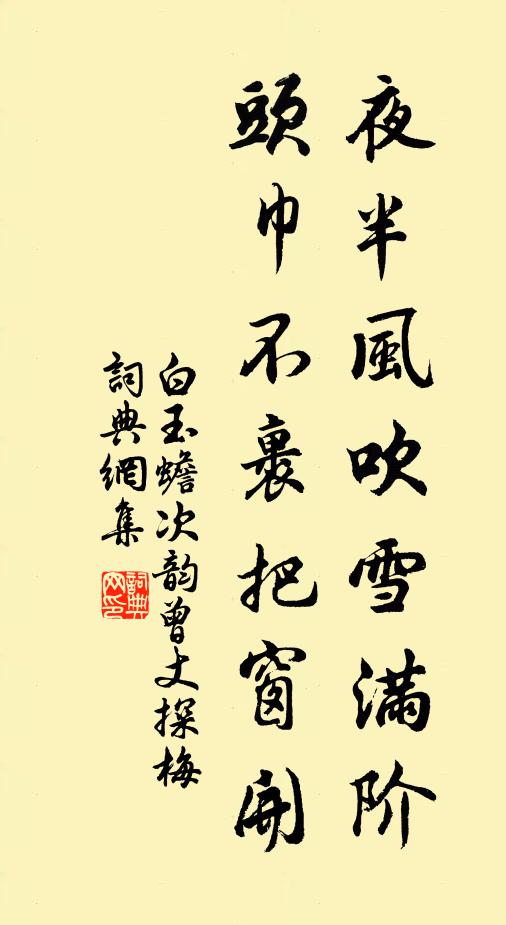 夜半風吹雪滿阶
頭巾不裹把窗開
白玉蟾次韵曾丈探梅
詞典網集
詞典网印